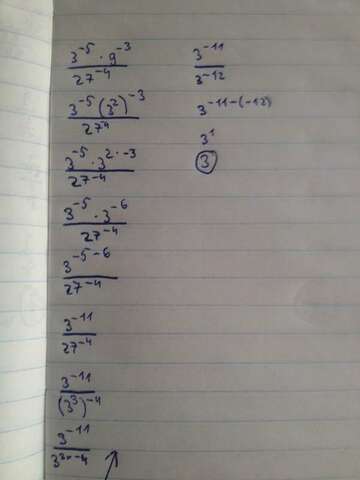 3^-5 · 9^-3 / 27^-4
3^-5 (3^2)^-3 / 27^-4
3^-5 · 3^2·-3 / 27^-4
3^-5 · 3^-6 / 27^-4
3^-5-6 / 27^-4
3^-11 / 27^-4
3^-11 / (3^3)^-4
3^-11 / 3^3·-4
3^-11 / 3^-12
3^-11-(-12)
3^1
3